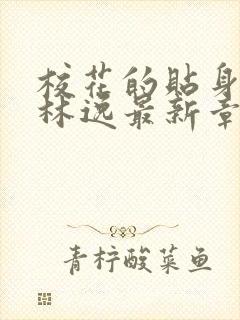 校花的贴身
林逸最新章
青柠酸菜鱼